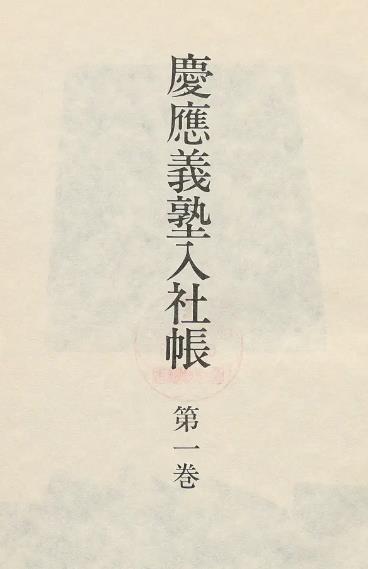 慶應義塾入社帳
第一巻